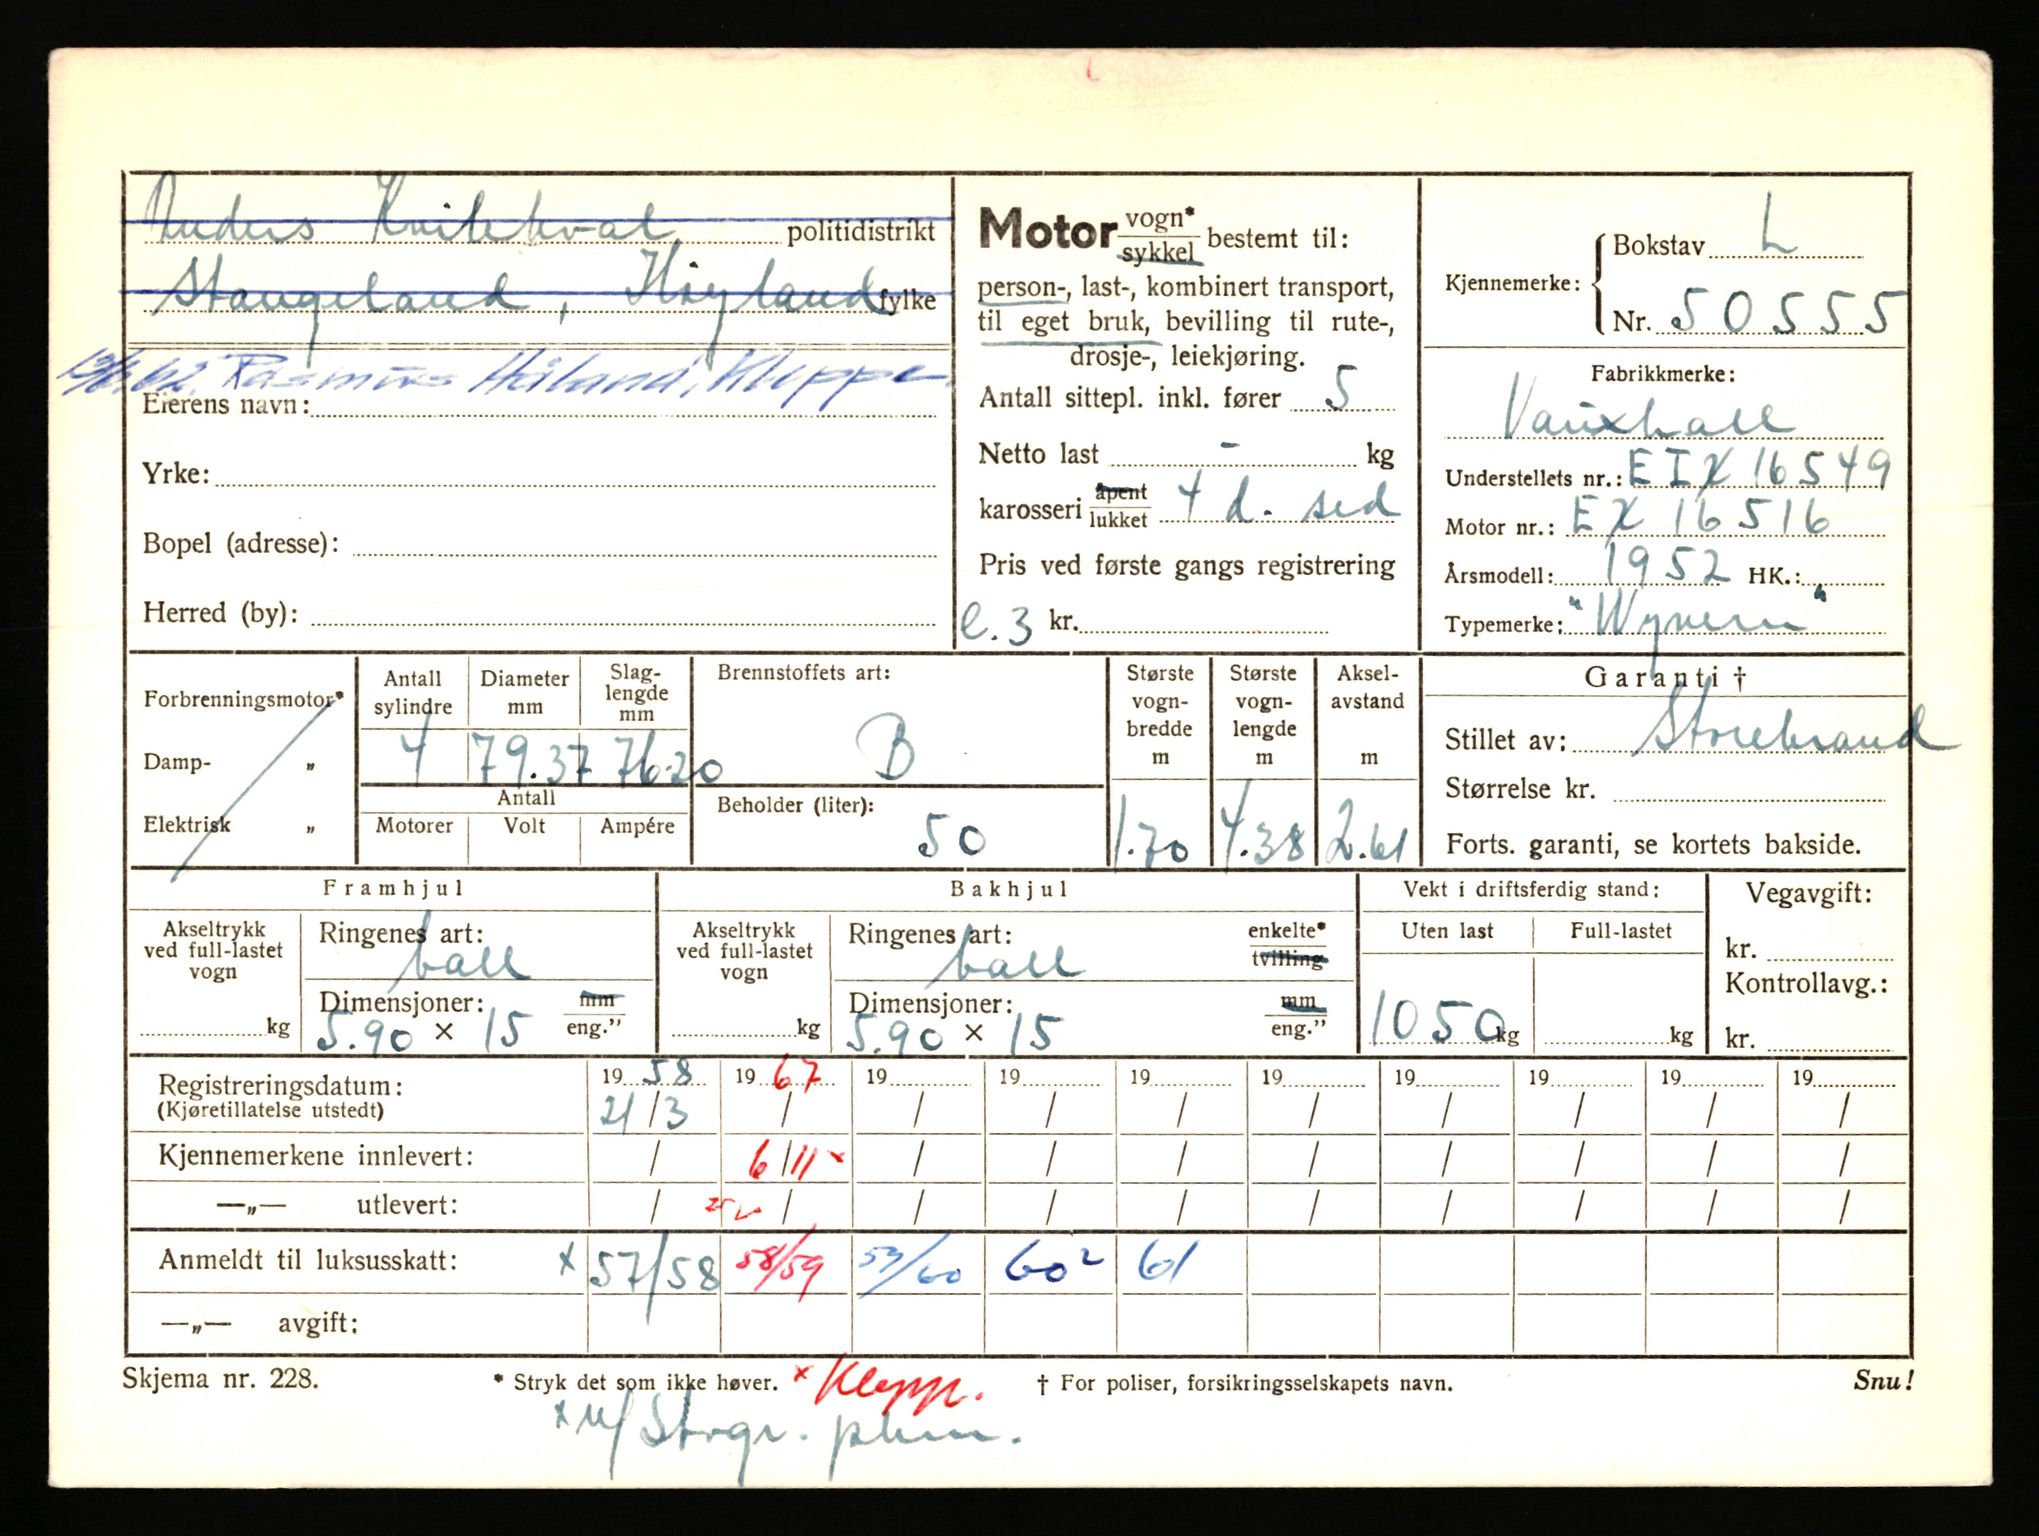 Anders Kvilekval politidistrikt
Stangeland, Høyland fylke
/62. Rasmus Håland, Kleppe.
Eierens navn:
Yrke:
Bopel (adresse):
Herred (by):
Motor vogn* sykkel bestemt til:
person-, last-, kombinert transport,
til eget bruk, bevilling til rute-,
drosje-, leiekjøring.
Antall sittepl. inkl. fører 5
Netto last - kg
karosseri åpent lukket 4 d. sed
Pris ved første gangs registrering
l.3 kr.
Kjennemerke: Bokstav L
Nr. 50555
Fabrikkmerke:
Vauxhall
Understellets nr.: EIX 16549
Motor nr.: EX 16516
Årsmodell: 1952 HK.:
Typemerke: "Wyvern"
Forbrenningsmotor*
Damp- „
Elektrisk „
Antall sylindre Diameter mm Slaglengde mm
4 79.37 76.20
Antall
Motorer Volt Ampére
Brennstoffets art:
B
Beholder (liter):
50
Største vognbredde m
1.70
Største vognlengde m
4.38
Akselavstand m
2.61
Garanti †
Stillet av: Storebrand
Størrelse kr.
Forts. garanti, se kortets bakside.
Framhjul
Akseltrykk ved full-lastet vogn
kg
Ringenes art:
ball
Dimensjoner: mm
5.90 × 15 eng.”
Bakhjul
Akseltrykk ved full-lastet vogn
kg
Ringenes art: enkelte*
ball tvilling
Dimensjoner: mm
5.90 × 15 eng.”
Vekt i driftsferdig stand:
Uten last Full-lastet
1050 kg kg
Vegavgift:
kr.
Kontrollavg.:
kr.
Registreringsdatum: 19 58 19 67 19 19 19 19 19 19 19 19
(Kjøretillatelse utstedt) 21/3 / / / / / / / / /
Kjennemerkene innlevert: / 6/11 x / / / / / / / /
—„— utlevert: / / / / / / / / / /
Anmeldt til luksusskatt: x 57/58 58/59 59/60 60² 61
—„— avgift:
Skjema nr. 228. * Stryk det som ikke høver. x Klepp. † For poliser, forsikringsselskapets navn. Snu!